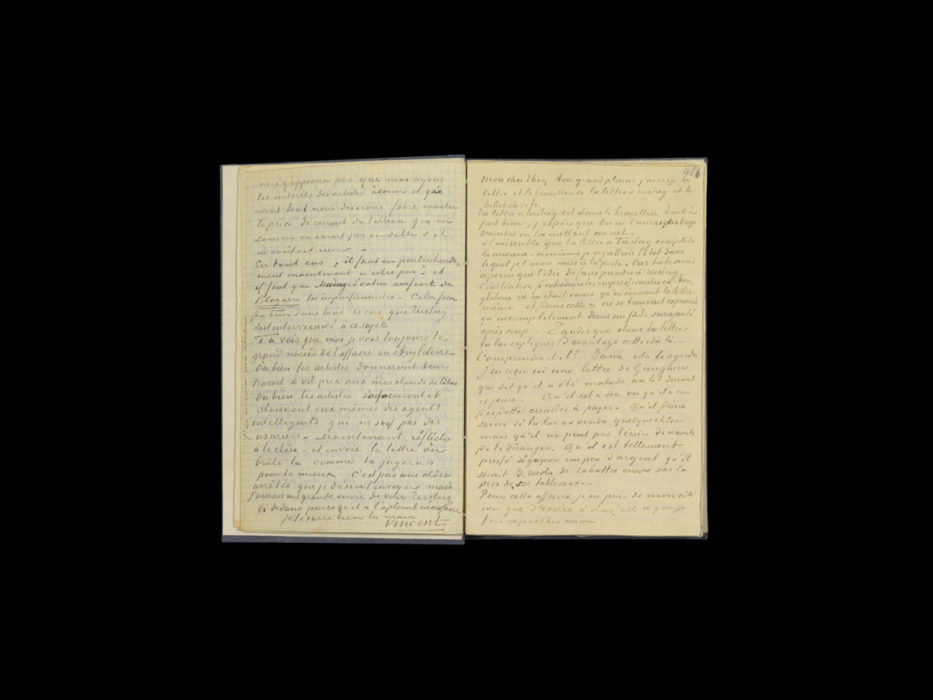 ne s'y opposera pas que nous ayons
les interets des artistes à coeur et que
avant tout nous desirons faire monter
le prix de revient du tableau qui en
somme ne seront pas vendables s'il
n'en coûtait
En tout cas, il faut en parler hardi
ment maintenant n'est ce pas - et
il faut que d'autres cessent de
Blaguer les impressionnistes - Cela fera
du bien dans tous les cas que Tersteeg
soit interviewé à ce sujet.
Tu vois que moi je vois toujours le
grand noeud de l'affaire en Angleterre
Ou bien les artistes donneront leur
travail à vil prix aux marchands de là bas
ou bien les artistes s'associeront et
choisiront eux mêmes des agents
intelligents qui ne sont pas des
usuriers - Maintenant réfléchis
à la chose - et envoie la lettre ou
brûle la comme tu jugeras
pour le mieux c'est pas une chose
arretée que je désire l'envoyer mais
j'aurais une grande envie de voir Tersteeg
là dedans parce qu'il a l'aplomb nécessaire
je te serre bien la main
Vincent
Mon cher Theo, à ton grand plaisir j'ai reçu
lettre et le brouillon de la lettre à Tersteeg et le
billet de 50 fr.
Ta lettre à Tersteeg est dans le brouillon tout à
fait bien, j'espère que tu ne l'auras pas trop
en la mettant au net.
Il me semble que ta lettre à Tersteeg complète
la mienne. moi même je regrettais l'etat dans
lequel je l'avais mise à la poste. Car tu te seras
aperçu que l'idée de faire prendre à Tersteeg
l'initiative d'introduire les impressionnistes en An
gleterre ne m'etait venue qu'en écrivant la lettre
même et dans celle ci ne se trouvait exprimée
qu'incomplètement dans un p.s. surajouté
après coup. - Tandis que dans ta lettre
tu lui expliques davantage cette idée là. -
Comprendra-t-il? Dame cela le regarde
J'ai reçu ici une lettre de Gauguin
qui dit qu'il a été malade au lit durant
15 jours. Qu'il est à sec vu qu'il a eu
des dettes criardes à payer. Qu'il désire
savoir si tu lui as vendu quelquechose
mais qu'il ne peut pas t'écrire de crainte
de te déranger. Qu'il est tellement
pressé de gagner un peu d'argent qu'il
serait résolu de rabattre encore sur le
prix de ses tableaux. -
Pour cette affaire je ne puis de mon côté
rien que d'écrire à Russell ce que je
fais aujourd'hui même.